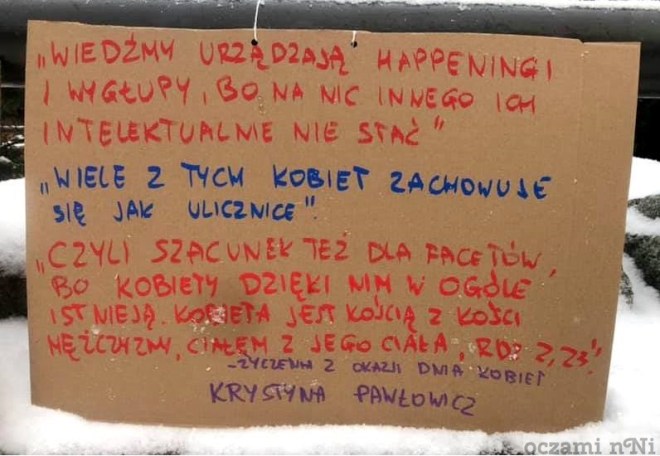 „WIEDŹMY URZĄDZAJĄ HAPPENINGI
I WYGŁUPY, BO NA NIC INNEGO ICH
INTELEKTUALNIE NIE STAĆ"
„WIELE Z TYCH KOBIET ZACHOWUJE
SIĘ JAK ULICZNICE".
„CZYLI SZACUNEK TEŻ DLA FACETÓW,
BO KOBIETY DZIĘKI NIM W OGÓLE
ISTNIEJĄ. KOBIETA JEST KOŚCIĄ Z KOŚCI
MĘŻCZYZNY, CIAŁEM Z JEGO CIAŁA, RDZ 2,23".
-ŻYCZENIA Z OKAZJI DNIA KOBIET
KRYSTYNA PAWŁOWICZ
oczami nNi